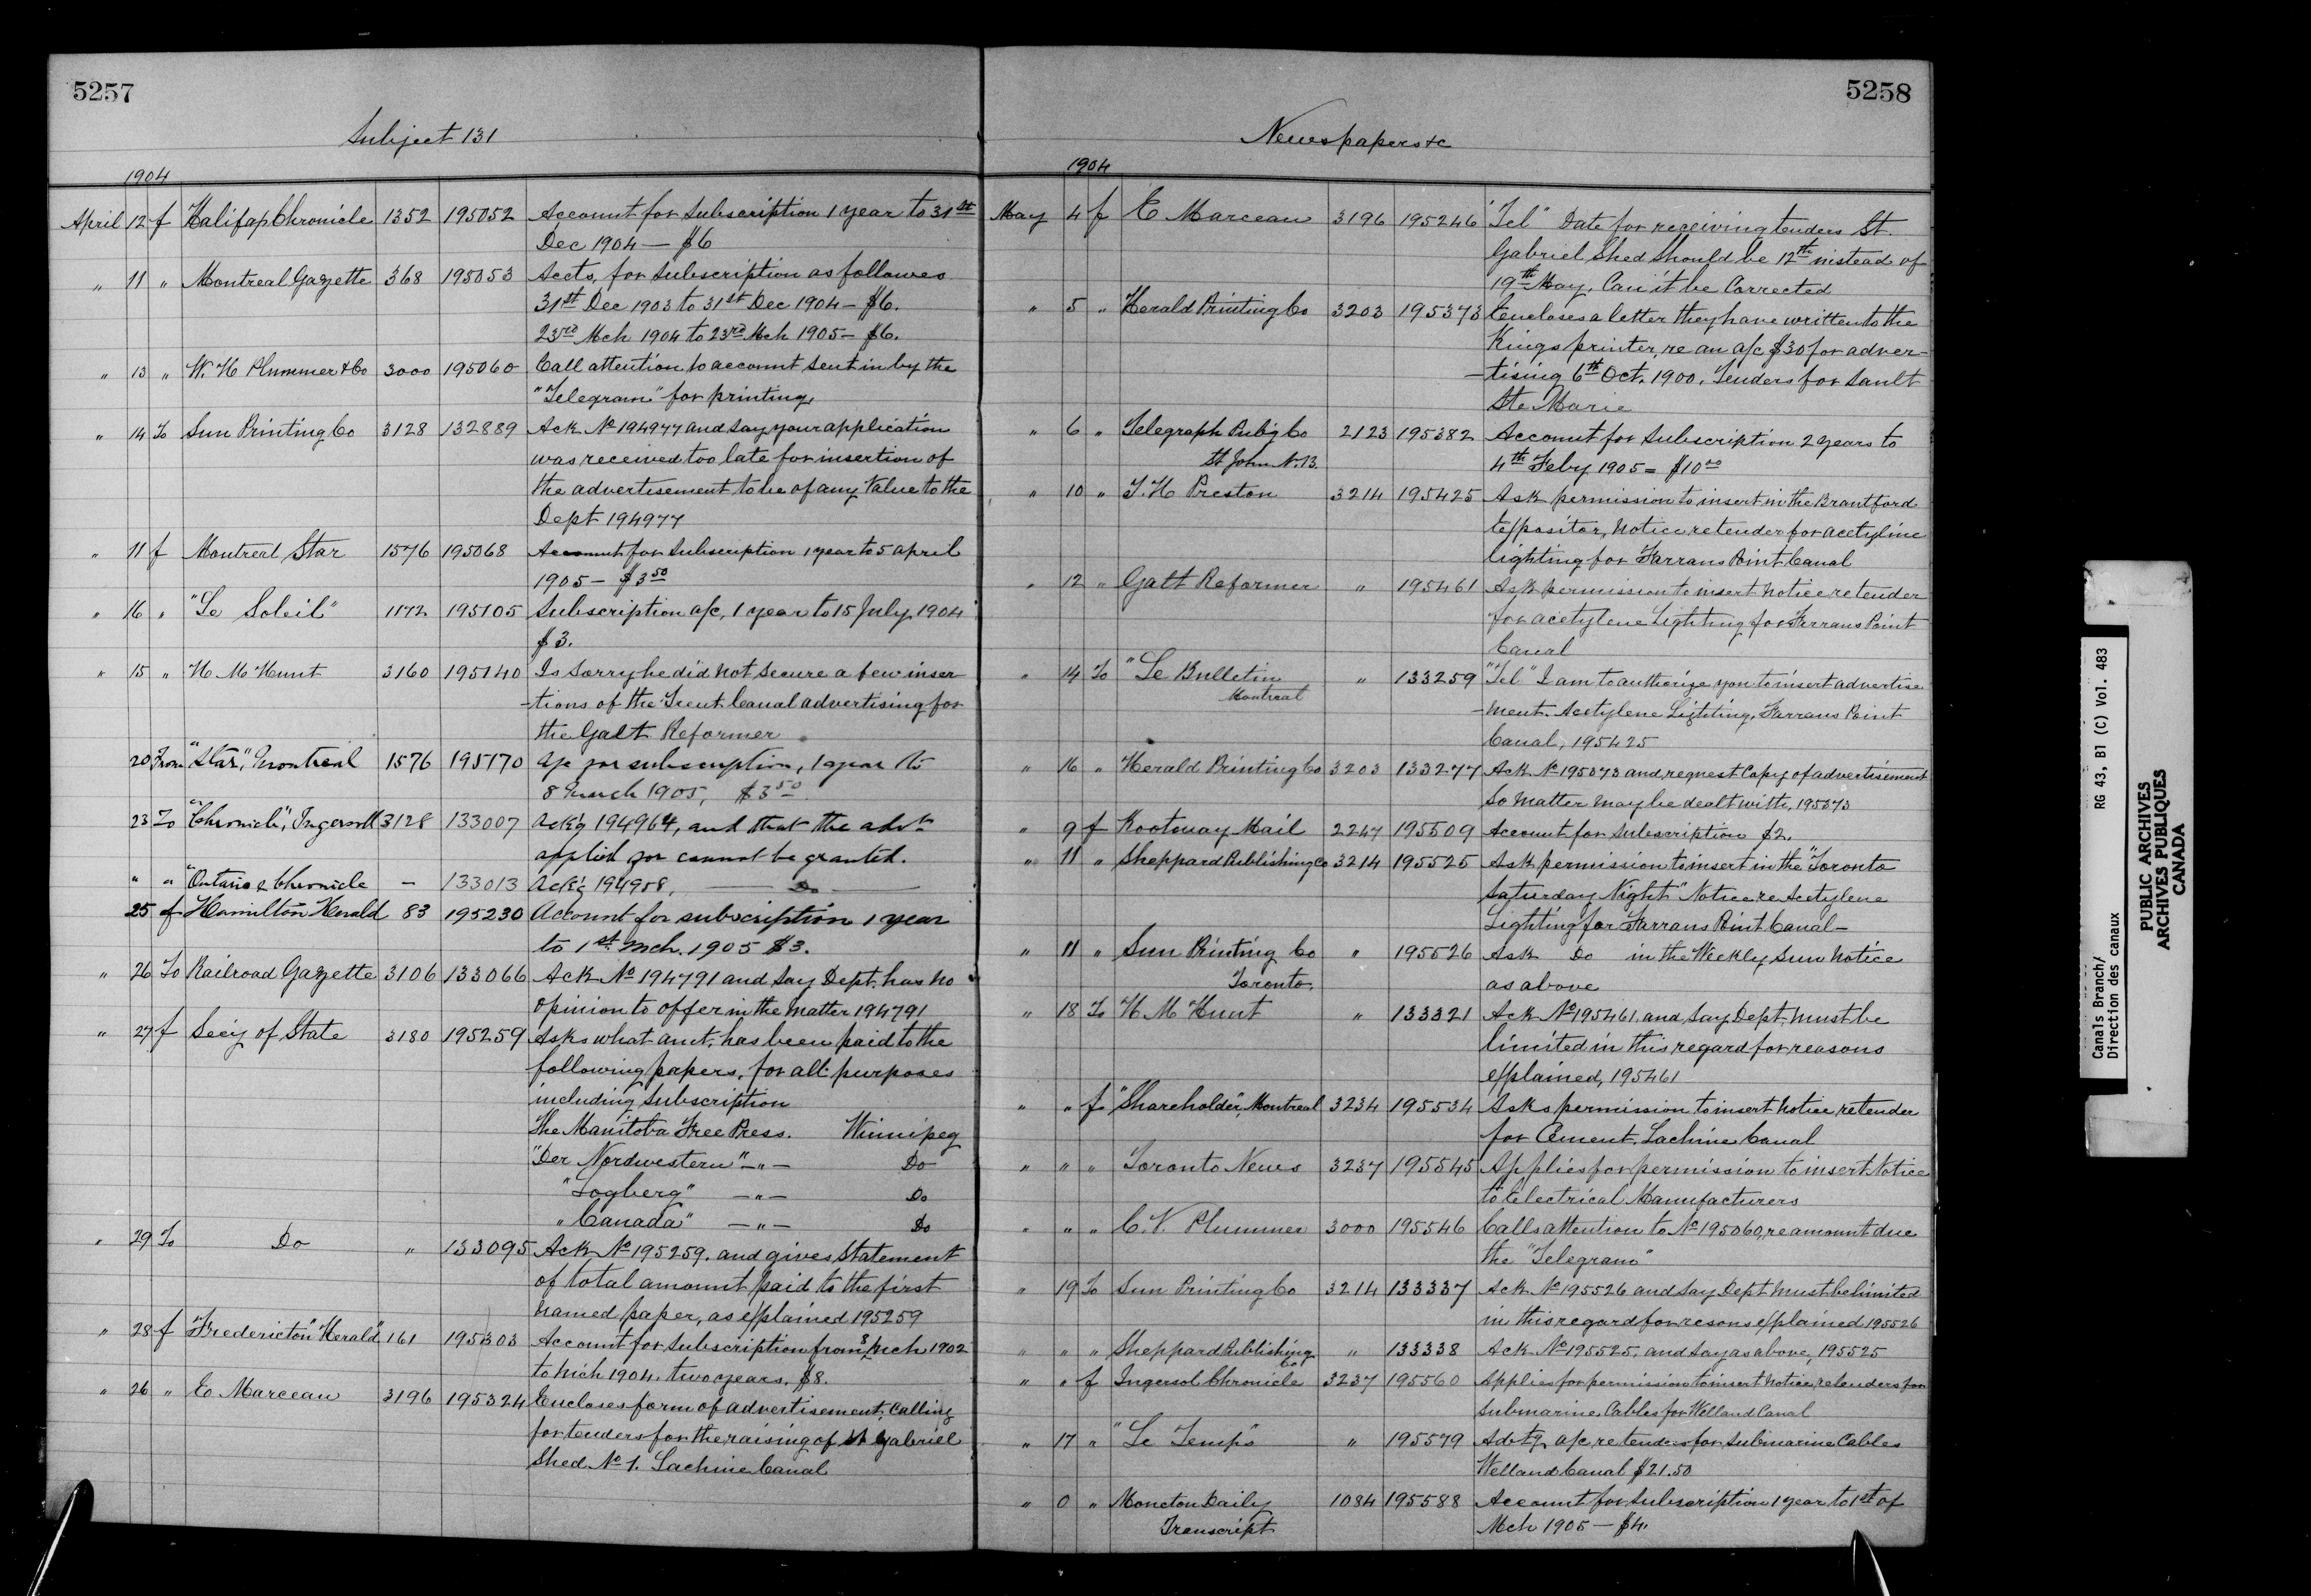 5257
Subject 131
1904
April 12 f Halifax Chronicle 1352 195052 Account for Subscription 1 year to 31st
Dec 1904 — $6
" 11 " Montreal Gazette 368 195053 Accts, for Subscription as followes
31st Dec 1903 to 31st Dec 1904 — $6.
23rd Mch 1904 to 23rd Mch 1905 — $6.
" 13 " W. H Plummer & Co 3000 195060 Call attention to account sent in by the
"Telegram" for printing.
" 14 To Sun Printing Co 3128 132889 Ack No 194977 and say your application
was received too late for insertion of
the advertisement to be of any Value to the
Dept 194977
" 11 f Montreal Star 1576 195068 Account for Subscription 1 year to 5 april
1905 — $3 50
" 16 " "Le Soleil" 1172 195105 Subscription a/c, 1 year to 15 July 1904
$3.
" 15 " H M Hunt 3160 195140 Is Sorry he did not Secure a few inser
-tions of the Trent Canal advertising for
the Galt Reformer
20 From "Star", Montreal 1576 195170 a/c for subscription, 1 year to
8 March 1905, $3 50
23 To "Chronicle", Ingersoll 3128 133007 Ack'g 194964, and that the advt
applied for cannot be granted.
" " "Ontario & Chronicle — 133013 Ack'g 194958, — Do —
25 f Hamilton Herald 83 195230 Account for subscription 1 year
to 1st Mch. 1905 $3.
" 26 To Railroad Gazette 3106 133066 Ack No 194791 and Say Dept. has no
opinion to offer in the matter 194791
" 27 f Secy of State 3180 195259 Asks what amt. has been paid to the
following papers, for all purposes
including Subscription
The Manitoba Free Press. Winnipeg
"Der Nordwestern" — " — Do
"Logberg" — " — Do
"Canada" — " — Do
" 29 To Do " 133095 Ack No 195259. and gives Statement
of total amount paid to the first
named paper, as explained 195259
" 28 f "Fredericton" Herald" 161 195303 Account for Subscription from 3 Mch 1902
to Mch 1904. two years. $8.
" 26 " E. Marceau 3196 195324 Encloses form of advertisement, Calling
for tenders for the raising of St Gabriel
Shed No 1. Lachine Canal
5258
Newspapers &c
1904
May 4 f E Marceau 3196 195246 "Tel" Date for receiving tenders St.
Gabriel Shed Should be 12th instead of
19th May. Can it be Corrected
" 5 " Herald Printing Co 3203 195373 Encloses a letter they have written to the
Kings printer, re an a/c $30 for adver-
-tising 6th Oct. 1900. Tenders for Sault
Ste Marie
" 6 " Telegraph Pub'g Co 2123 195382 Account for Subscription 2 years to
St John N.B. 4th Feby 1905 = $10 00
" 10 " T. H Preston 3214 195425 Ask permission to insert in the Brantford
Expositor, Notice re tender for acetyline
lighting for Farrans Point Canal
" 12 " Galt Reformer " 195461 Ask permission to insert Notice re tender
for acetylene Lighting for Farrans Point
Canal
" 14 To "Le Bulletin " 133259 "Tel" I am to authorize you to insert advertise
Montreal -ment. Acetylene Lighting, Farrans Point
Canal, 195425
" 16 " Herald Printing Co 3203 133277 Ack No 195373 and, request Copy of advertisement
So Matter may be dealt with, 195373
" 9 f Kootenay Mail 2247 195509 Account for Subscription $2.
" 11 " Sheppard Publishing Co 3214 195525 Ask permission to insert in the "Toronto
Saturday Night" Notice re Acetylene
Lighting for Farrans Point Canal —
" 11 " Sun Printing Co " 195526 Ask Do in the Weekly Sun Notice
Toronto. as above
" 18 To H M Hunt " 133321 Ack No 195461, and Say Dept. must be
limited in this regard for reasons
explained, 195461
" " f "Shareholder", Montreal 3234 195534 Asks permission to insert Notice, re tender
for Cement. Lachine Canal
" " " Toronto News 3237 195545 Applies for permission to insert Notice
to Electrical Manufacturers
" " " C. V. Plummer 3000 195546 Calls attention to No 195060, re amount due
the "Telegram"
" 19 To Sun Printing Co 3214 133337 Ack No 195526 and Say Dept must be limited
in this regard for resons explained 195526
" " " Sheppard Publishing Co " 133338 Ack No 195525. and say as above, 195525
" " f Ingersol Chronicle 3237 195560 Applies for permission to insert Notice, re tenders for
Submarine Cables for Welland Canal
" 17 " "Le Temps" " 195579 Advtg. a/c, re tenders for Submarine Cables
Welland Canal $21.50
" 0 " Moncton Daily 1084 195588 Account for Subscription 1 year to 1st of
Transcript Mch 1905 — $4.
Canals Branch/
Direction des canaux
RG 43, B1 (C) Vol. 483
PUBLIC ARCHIVES
ARCHIVES PUBLIQUES
CANADA